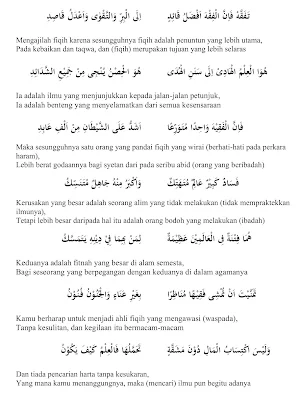 تَفَقَّهْ فَإِنَّ الْفِقْهَ أَفْضَلُ قَائِدٍ إِلَى الْبِرِّ وَالتَّقْوَى وَأَعْدَلُ قَاصِدٍ
Mengajilah fiqih karena sesungguhnya fiqih adalah penuntun yang lebih utama,
Pada kebaikan dan taqwa, dan (fiqih) merupakan tujuan yang lebih selaras
هُوَ الْعِلْمُ الْهَادِيْ إِلَى سَنَنِ الْهُدَى هُوَ الْحِصْنُ يُنْجِى مِنْ جَمِيْعِ الشَّدَائِدِ
Ia adalah ilmu yang menjunjukkan kepada jalan-jalan petunjuk,
Ia adalah benteng yang menyelamatkan dari semua kesensaraan
فَإِنَّ الْفَقِيْهَ وَاحِدًا مُتَوَرِّعًا أَشَدُّ عَلَى الشَّيْطَانِ مِنْ أَلْفِ عَابِدٍ
Maka sesungguhnya satu orang yang pandai fiqih yang wirai (berhati-hati pada perkara
haram),
Lebih berat godaannya bagi syetan dari pada seribu abid (orang yang beribadah)
فَسَادٌ كَبِيْرٌ عَالِمٌ مُتَهَتِّكٌ وَأَكْبَرُ مِنْهُ جَاهِلٌ مُتَنَسِّكٌ
Kerusakan yang besar adalah seorang alim yang tidak melakukan (tidak mempraktekkan
ilmunya),
Tetapi lebih besar daripada hal itu adalah orang bodoh yang melakukan (ibadah)
هُمَا فِتْنَةٌ فِي الْعَالَمِيْنَ عَظِيْمَةٌ لِمَنْ بِهِمَا فِيْ دِيْنِهِ يَتَمَسَّكُ
Keduanya adalah fitnah yang besar di alam semesta,
Bagi seseorang yang berpegangan dengan keduanya di dalam agamanya
تَمَنَّيْتَ أَنْ تُمْسِيَ فَقِيْهًا مُنَاظِرًا بِغَيْرِ عَنَاءٍ وَالْجُنُوْنُ فُنُوْنٌ
Kamu berharap untuk menjadi ahli fiqih yang mengawasi (waspada),
Tanpa kesulitan, dan kegilaan itu bermacam-macam
وَلَيْسَ اكْتِسَابُ الْمَالِ دُوْنَ مَشَقَّةٍ تَحَمَّلُهَا فَالْعِلْمُ كَيْفَ يَكُوْنُ
Dan tiada pencarian harta tanpa kesukaran,
Yang mana kamu menanggungnya, maka (mencari) ilmu pun begitu adanya